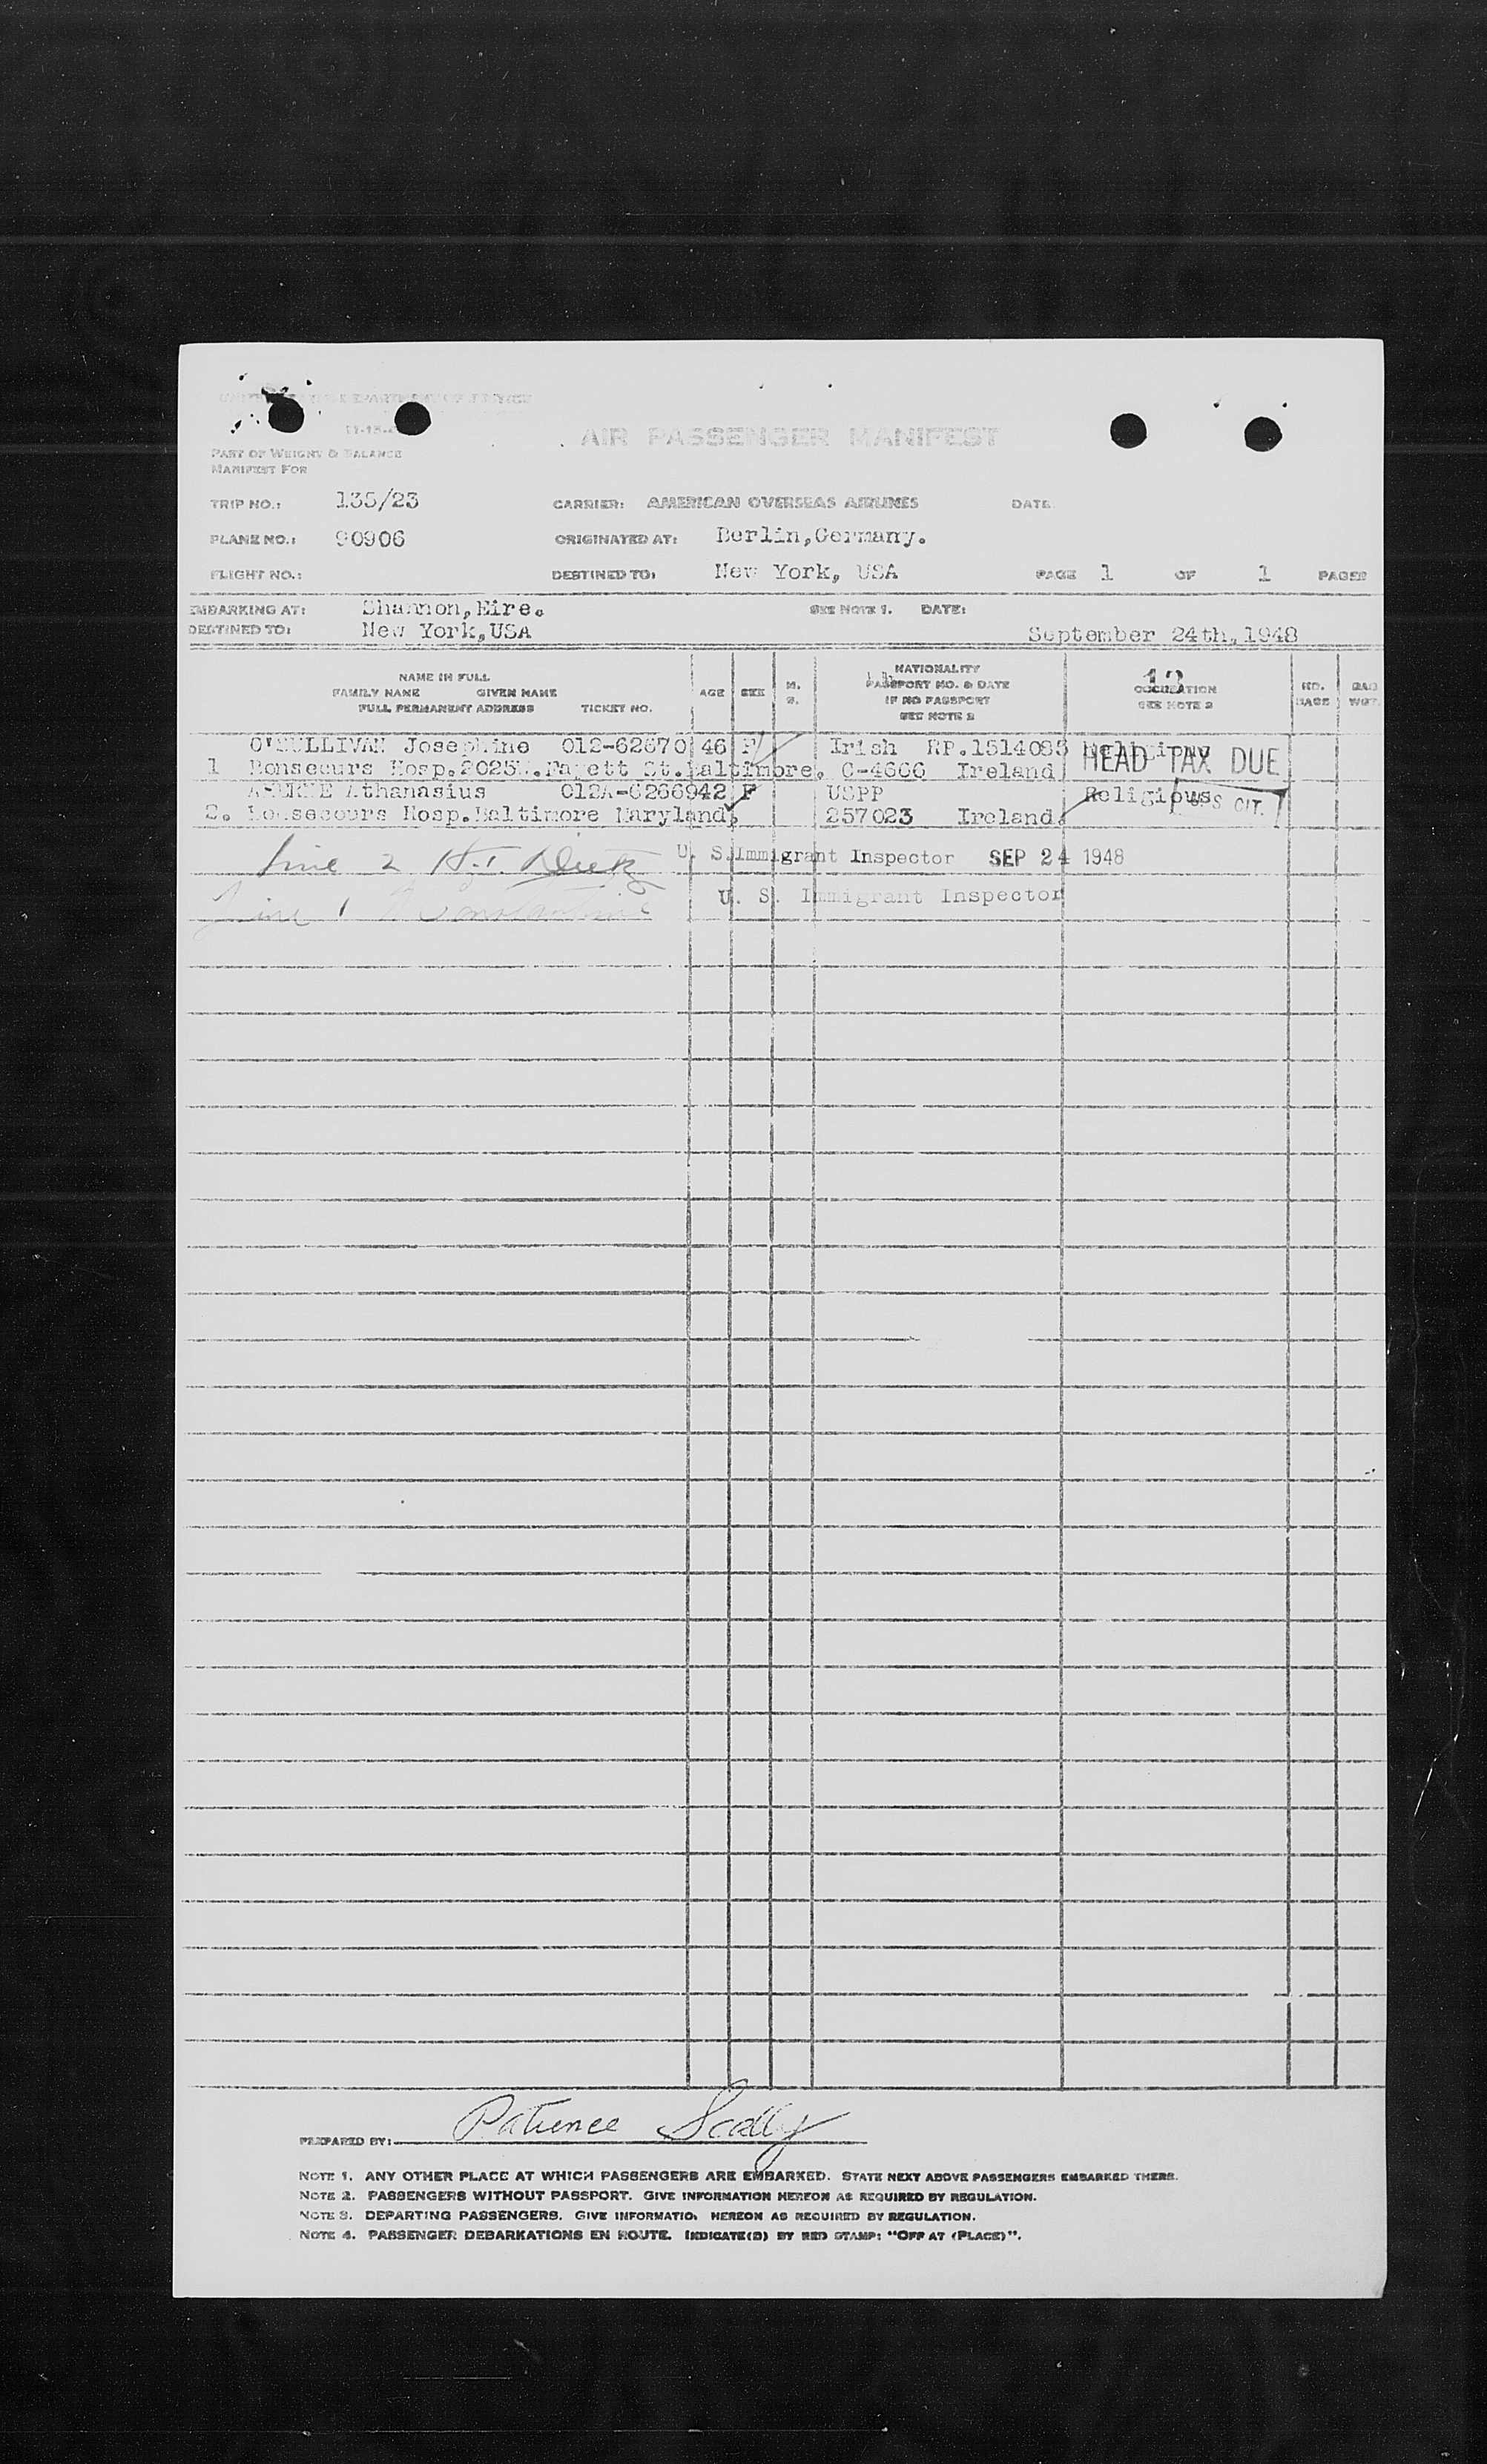 DEPARTMENT OF JUSTICE
AIR PASSENGER MANIFEST
PART OF WEIGHT & BALANCE
MANIFEST FOR
TRIP NO.: 135/23 CARRIER: AMERICAN OVERSEAS AIRLINES DATE
PLANE NO.: 90906 ORIGINATED AT: Berlin,Germany.
FLIGHT NO.: DESTINED TO: New York, USA PAGE 1 OF 1 PAGES
EMBARKING AT: Shannon,Eire. SEE NOTE 1. DATE:
DESTINED TO: New York,USA September 24th,1948
NAME IN FULL
FAMILY NAME GIVEN NAME
FULL PERMANENT ADDRESS TICKET NO.
AGE SEX M. S.
NATIONALITY
PASSPORT NO. & DATE
IF NO PASSPORT
SEE NOTE 2
12
OCCUPATION
SEE NOTE 2
NO. BAGS BAG WGT.
O'SULLIVAN Josephine 012-62670 46 F Irish RP.151408 HEAD TAX DUE
1 Bonsecurs Hosp.2025W.Fayett St.Baltimore. C-4666 Ireland
Athanasius 012A-6266942 F USPP Religious U S CIT.
2. Bonsecours Hosp.Baltimore Maryland. 257023 Ireland.
Line 2 H.T. U. S. Immigrant Inspector SEP 24 1948
Line 1 U. S. Immigrant Inspector
PREPARED BY: Patience Scally
NOTE 1. ANY OTHER PLACE AT WHICH PASSENGERS ARE EMBARKED. STATE NEXT ABOVE PASSENGERS EMBARKED THERE.
NOTE 2. PASSENGERS WITHOUT PASSPORT. GIVE INFORMATION HEREON AS REQUIRED BY REGULATION.
NOTE 3. DEPARTING PASSENGERS. GIVE INFORMATION HEREON AS REQUIRED BY REGULATION.
NOTE 4. PASSENGER DEBARKATIONS EN ROUTE. INDICATE(D) BY RED STAMP: "OFF AT (PLACE)".